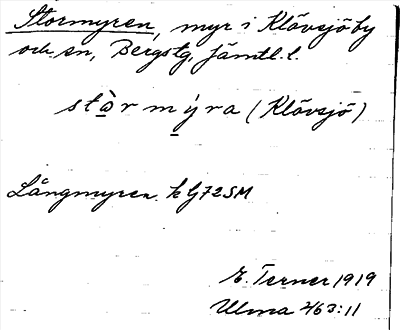 Stormyren, myr i Klövsjö by
och sn, Bergs tg, Jämtl. l.
stàr mýra (Klövsjö)
Långmyren. k GJ 72 SM
E. Terner 1919
Ulma 263:11